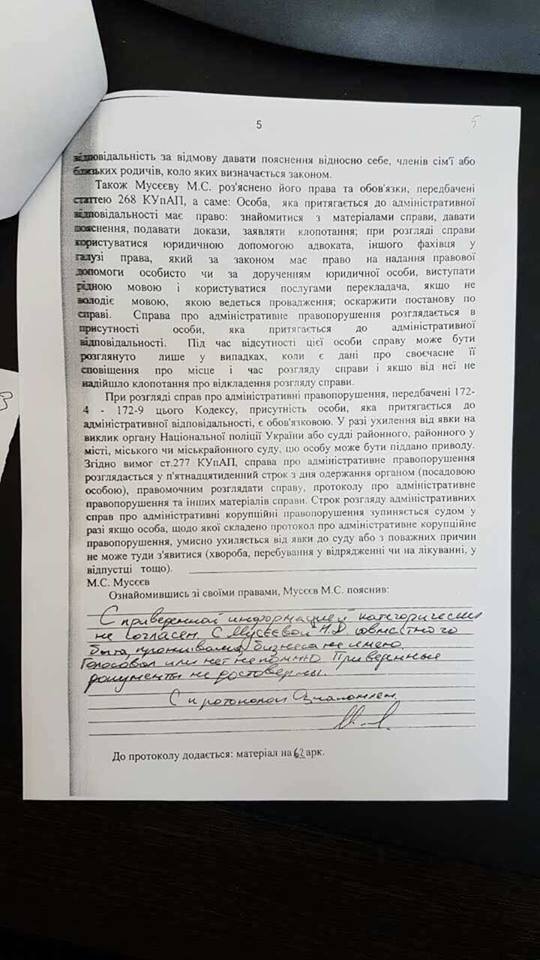 5
5
відповідальність за відмову давати пояснення відносно себе, членів сім'ї або
близьких родичів, коло яких визначається законом.
Також Мусєєву М.С. роз'яснено його права та обов'язки, передбачені
статтею 268 КУпАП, а саме: Особа, яка притягається до адміністративної
відповідальності має право: знайомитися з матеріалами справи, давати
пояснення, подавати докази, заявляти клопотання; при розгляді справи
користуватися юридичною допомогою адвоката, іншого фахівця у
галузі права, який за законом має право на надання правової
допомоги особисто чи за дорученням юридичної особи, виступати
рідною мовою і користуватися послугами перекладача, якщо не
володіє мовою, якою ведеться провадження; оскаржити постанову по
справі. Справа про адміністративне правопорушення розглядається в
присутності особи, яка притягається до адміністративної
відповідальності. Під час відсутності цієї особи справу може бути
розглянуто лише у випадках, коли є дані про своєчасне її
сповіщення про місце і час розгляду справи і якщо від неї не
надійшло клопотання про відкладення розгляду справи.
При розгляді справ про адміністративні правопорушення, передбачені 172-
4 - 172-9 цього Кодексу, присутність особи, яка притягається до
адміністративної відповідальності, є обов'язковою. У разі ухилення від явки на
виклик органу Національної поліції України або судді районного, районного у
місті, міського чи міськрайонного суду, цю особу може бути піддано приводу.
Згідно вимог ст.277 КУпАП, справа про адміністративне правопорушення
розглядається у п'ятнадцятиденний строк з дня одержання органом (посадовою
особою), правомочним розглядати справу, протоколу про адміністративне
правопорушення та інших матеріалів справи. Строк розгляду адміністративних
справ про адміністративні корупційні правопорушення зупиняється судом у
разі якщо особа, щодо якої складено протокол про адміністративне корупційне
правопорушення, умисно ухиляється від явки до суду або з поважних причин
не може туди з'явитися (хвороба, перебування у відрядженні чи на лікуванні, у
відпустці тощо).
М.С. Мусєєв
Ознайомившись зі своїми правами, Мусєєв М.С. пояснив:
С приведенной информацией категорически
не согласен. С Мусєєвой Н.Д совместного
быта, проживания, бизнеса не имею.
Голосовал или нет не помню. Приведенные
документы не достоверны.
С протоколом Ознакомлен
До протоколу додається: матеріал на 62 арк.